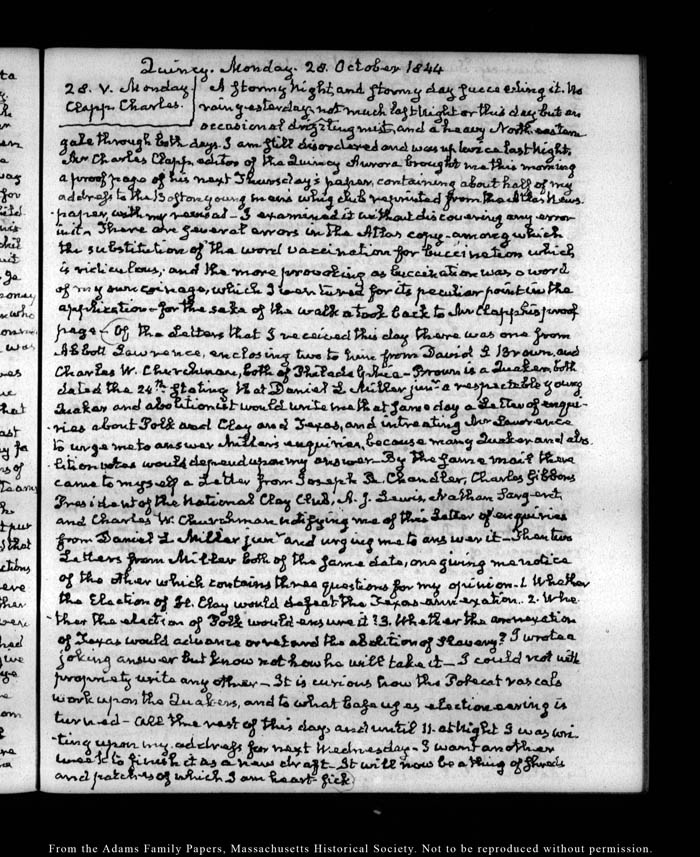 Quincy. Monday. 28. October 1844
28. V. Monday. A stormy Night, and stormy day succeeding it. No
Clapp Charles. rain yesterday, not much last Night or this day but an
occasional drizzling mist, and a heavy North-eastern
gale through both days. I am still disordered and was up twice last Night,
Mr Charles Clapp, editor of the Quincy Aurora brought me this morning
a proof page of his next Thursday's paper, containing about half of my
address to the Boston young men's whig club reprinted from the Atlas News-
paper, with my revisal — I examined it without discovering any error
in it. There are several errors in the Atlas copy among which
the substitution of the word vaccination for buccination which
is ridiculous; and the more provoking as buccination was a word
of my own coinage, which I ventured for its peculiar point in the
application — for the sake of the walk I took back to Mr Clapp his proof
page — Of the Letters that I received this day there was one from
Abbott Lawrence, enclosing two to him from David S. Brown, and
Charles W. Churchman, both of Philadelphia — Brown is a Quaker, both
dated the 24th stating that Daniel L. Miller junr a respectable young
Quaker and abolitionist would write me that same day a Letter of enqui-
ries about Polk and Clay and Texas, and intreating Mr Lawrence
to urge me to answer Miller's enquiries, because many Quaker and abo-
lition votes would depend upon my answer — By the same mail there
came to myself a Letter from Joseph R. Chandler, Charles Gibbons
President of the National Clay Club, A. J. Lewis, Nathan Sargent
and Charles W. Churchman notifying me of this Letter of enquiries
from Daniel L. Miller junr and urging me to answer it — Then two
Letters from Miller both of the same date, one giving me notice
of the other which contains three questions for my opinion. 1. Whether
the Election of H. Clay would defeat the Texas-annexation. 2. Whe-
ther the election of Polk would ensure it? 3. Whether the annexation
of Texas would advance or retard the abolition of Slavery? I wrote a
joking answer but know not how he will take it — I could not with
propriety write any other — It is curious how the Polecat rascals
work upon the Quakers, and to what base uses electioneering is
turned — All the rest of this day, and until 11. at Night I was wri-
ting upon my address for next Wednesday — I want another
week to finish it as a new draft — It will now be a thing of shreds
and patches of which I am heart-sick
From the Adams Family Papers, Massachusetts Historical Society. Not to be reproduced without permission.